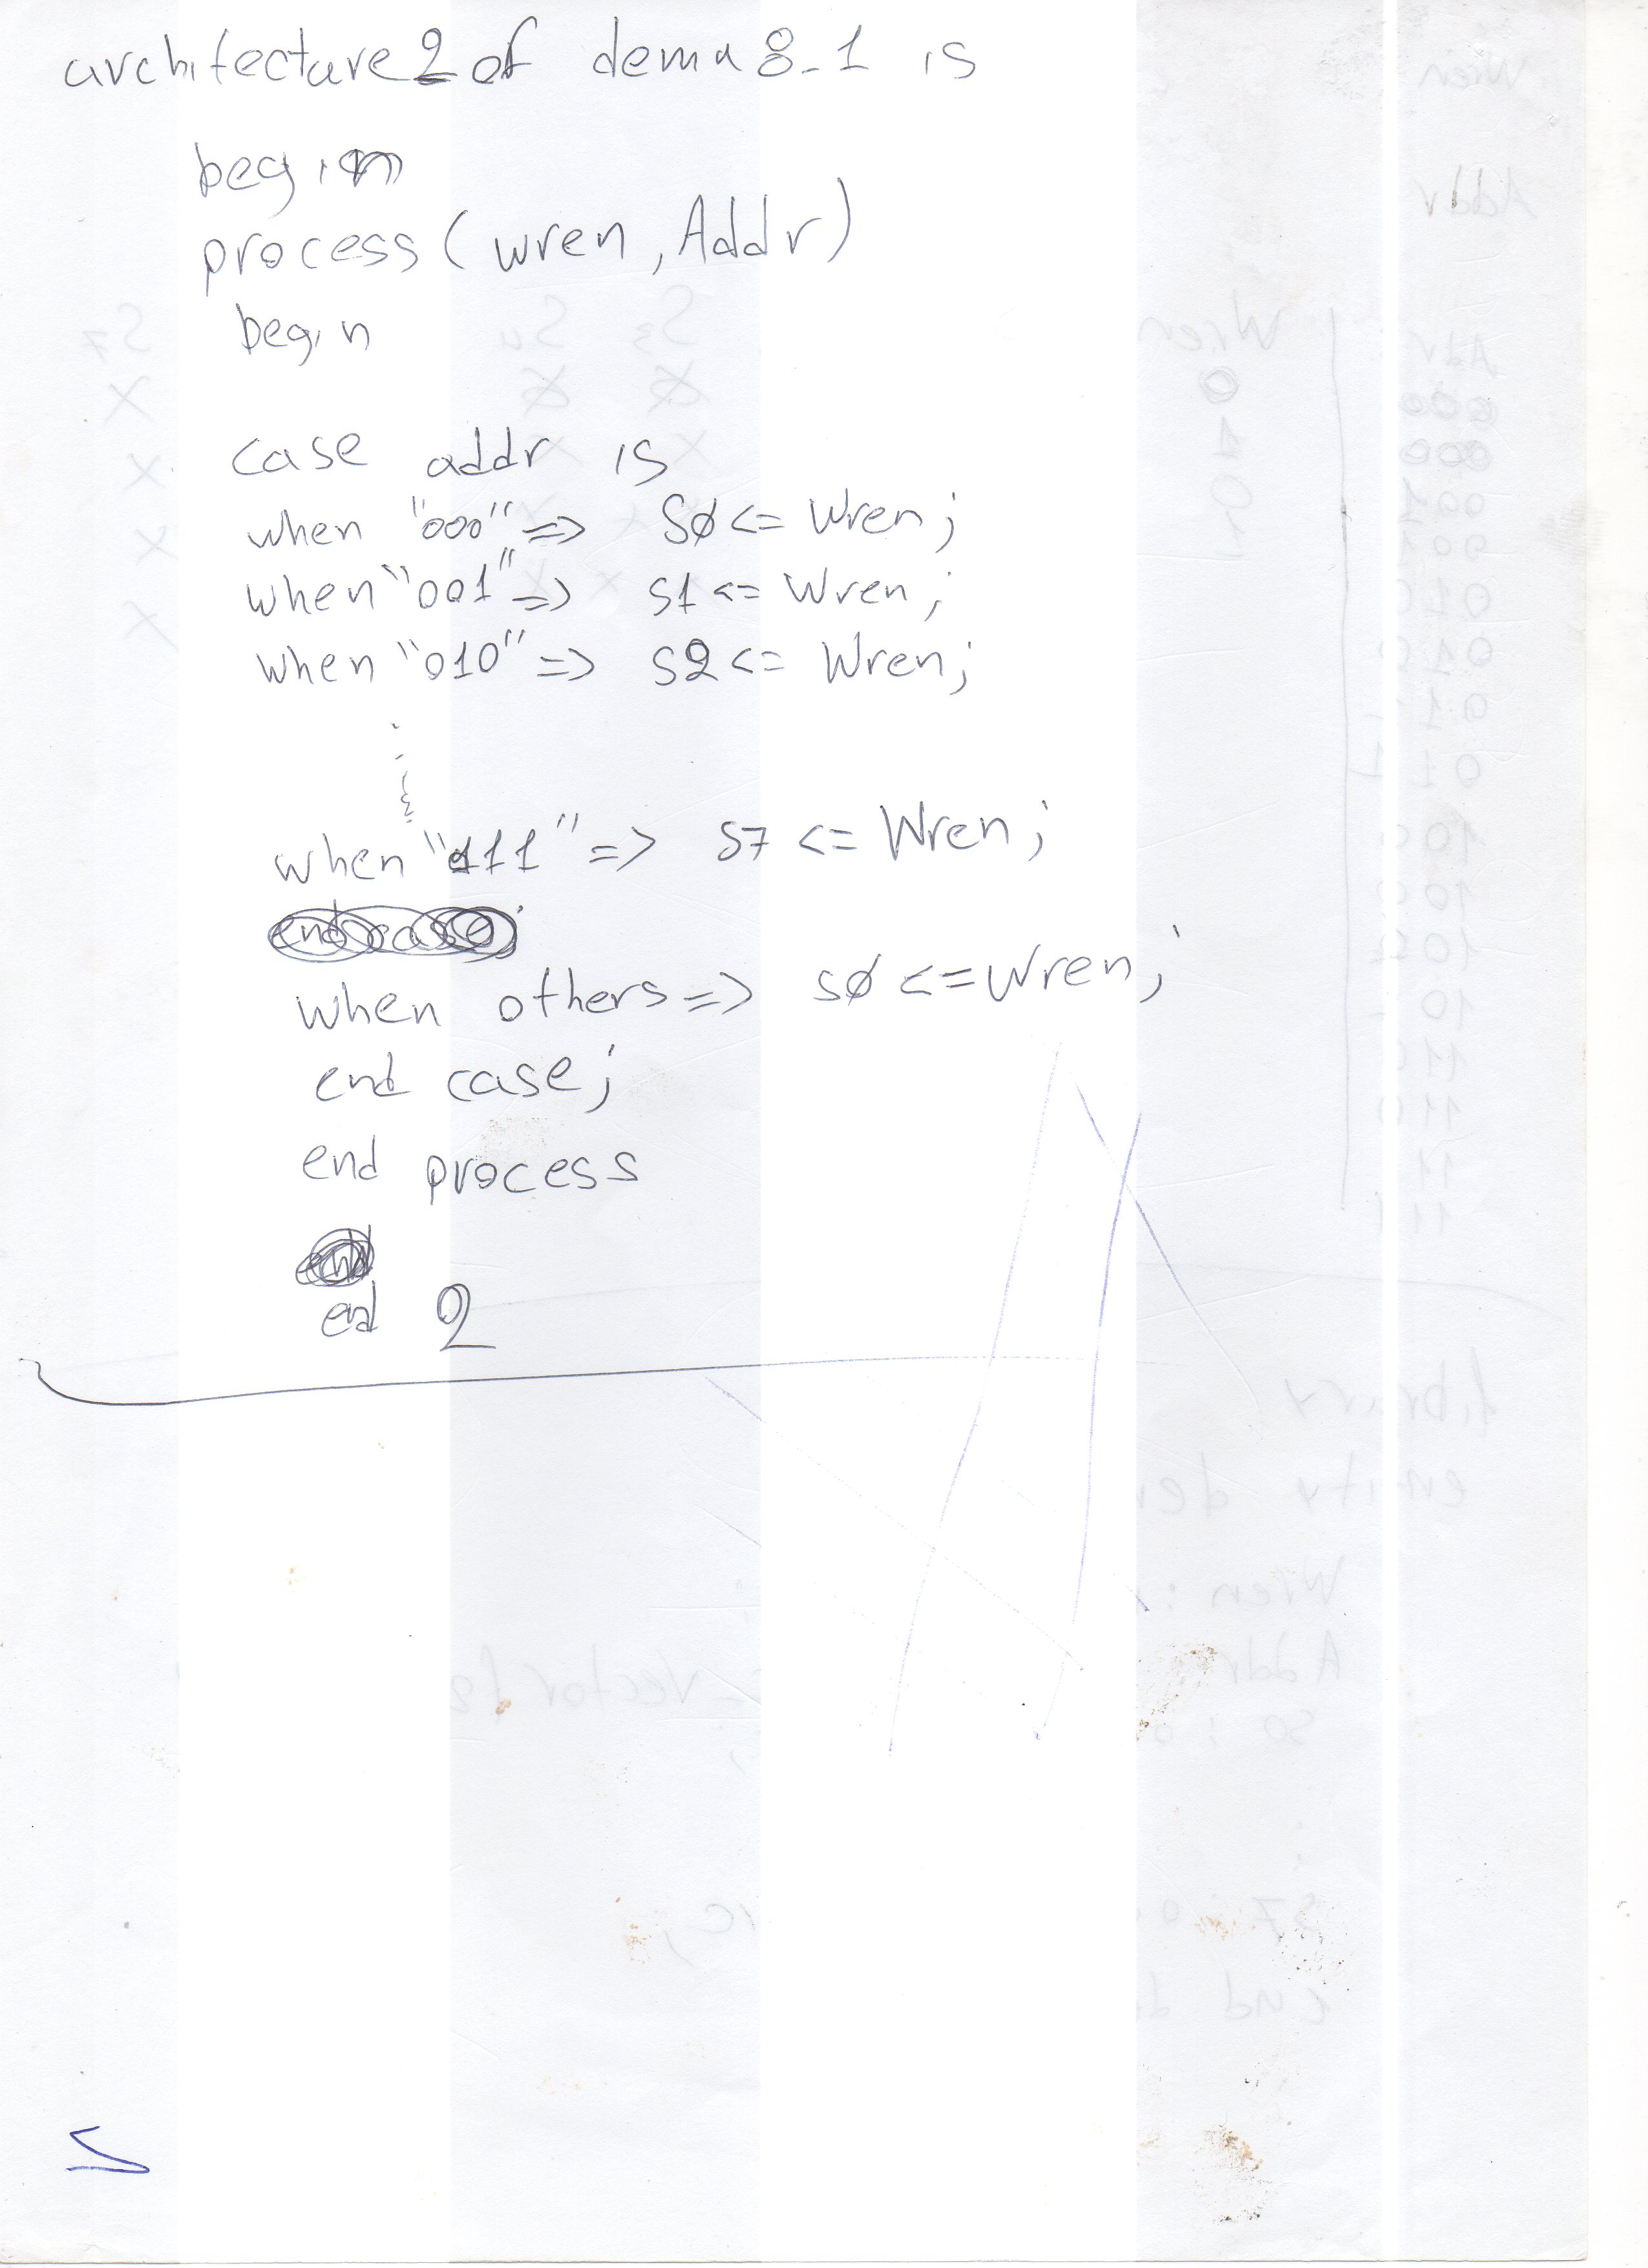 architecture 2 of demu 8_1 is
begin
process (wren, Addr)
begin
case addr is
when "000" => S0 <= Wren;
when "001" => S1 <= Wren;
when "010" => S2 <= Wren;
when "111" => S7 <= Wren;
when others => S0 <= Wren;
end case;
end process
end 2